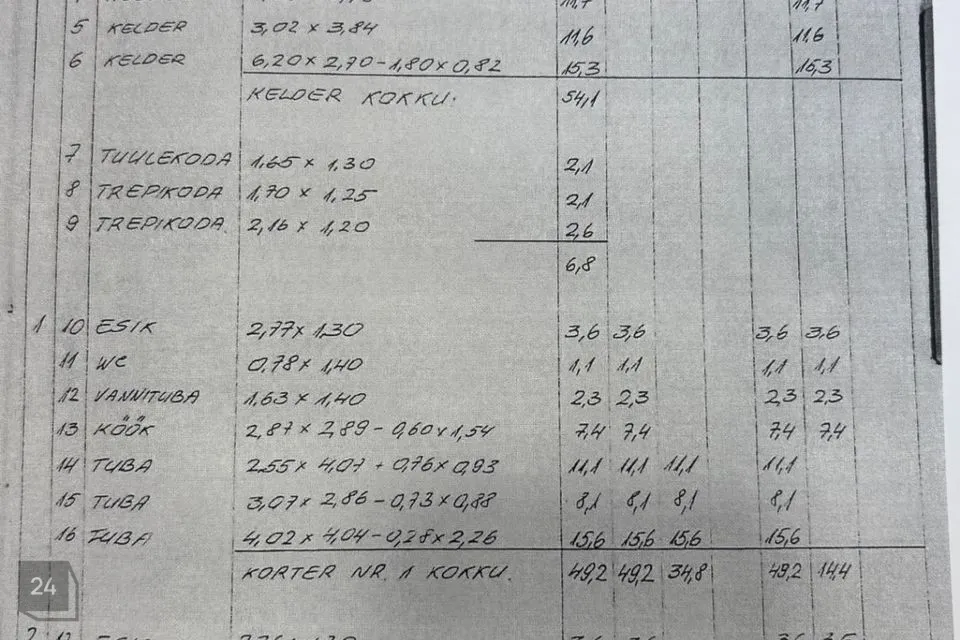 11,7 11,7
5 KELDER 3,02 × 3,84 11,6 11,6
6 KELDER 6,20 × 2,70 - 1,80 × 0,82 15,3 15,3
KELDER KOKKU. 54,1
7 TUULEKODA 1,65 × 1,30 2,1
8 TREPIKODA 1,70 × 1,25 2,1
9 TREPIKODA. 2,16 × 1,20 2,6
6,8
1 10 ESIK 2,77 × 1,30 3,6 3,6 3,6 3,6
11 WC 0,78 × 1,40 1,1 1,1 1,1 1,1
12 VANNITUBA 1,63 × 1,40 2,3 2,3 2,3 2,3
13 KÖÖK 2,87 × 2,89 - 0,60 × 1,54 7,4 7,4 7,4 7,4
14 TUBA 2,55 × 4,07 + 0,76 × 0,93 11,1 11,1 11,1 11,1
15 TUBA 3,07 × 2,86 - 0,73 × 0,88 8,1 8,1 8,1 8,1
16 TUBA 4,02 × 4,04 - 0,28 × 2,26 15,6 15,6 15,6 15,6
KORTER NR. 1 KOKKU. 49,2 49,2 34,8 49,2 14,4
24